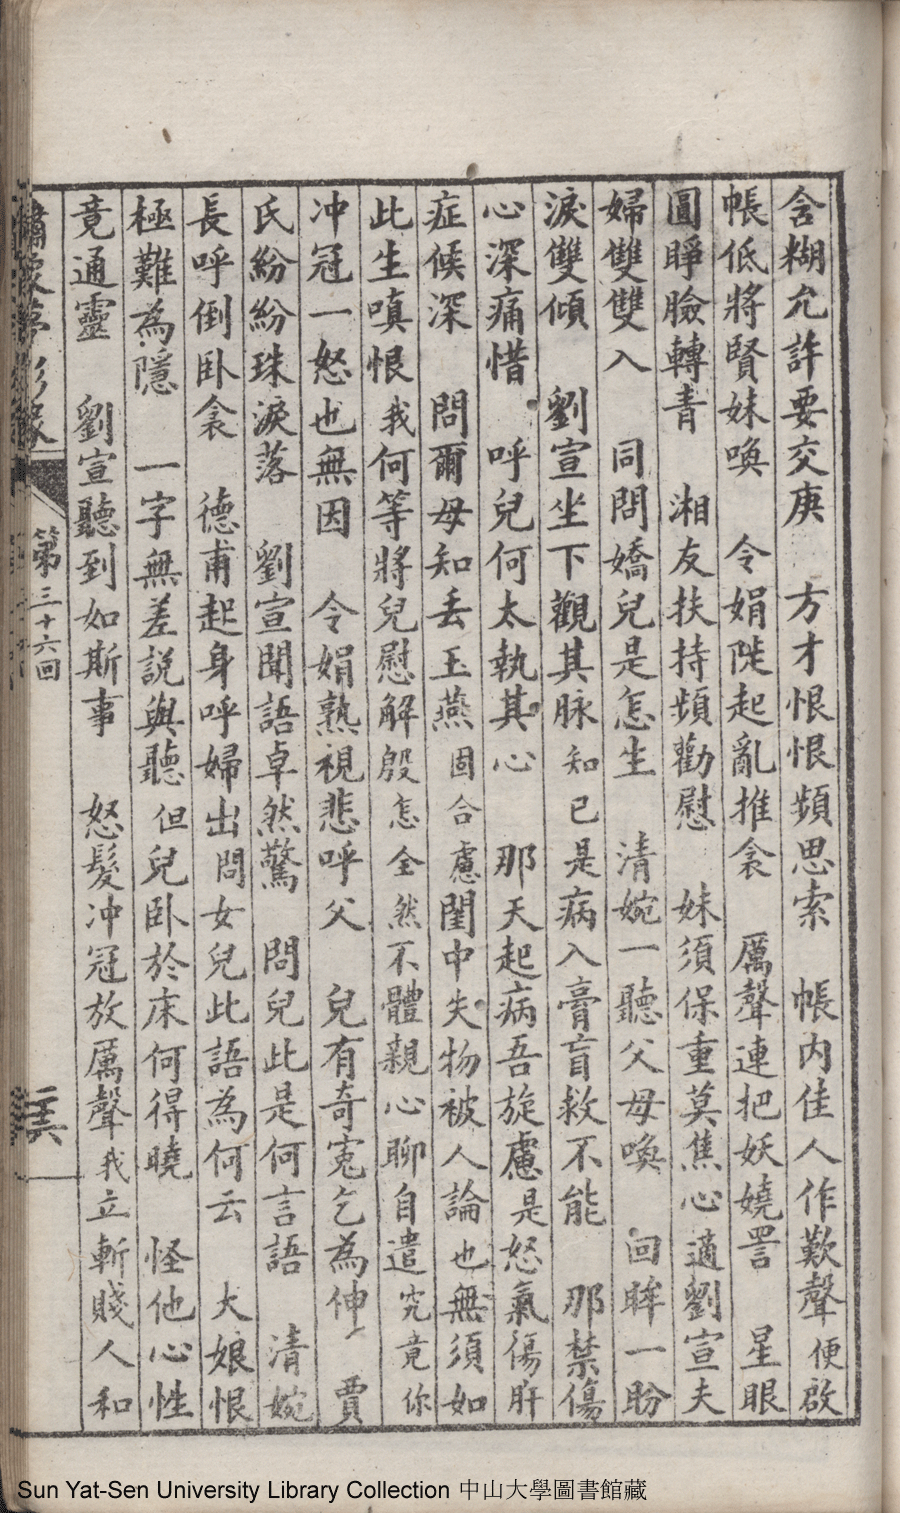 含糊允許要交庚　方才恨恨頻思索　帳內佳人作歎聲便啟
帳低將賢妹喚　令娟陡起亂推衾　厲聲連把妖嬈詈　星眼
圓睜臉轉青　湘友扶持頻勸慰　妹須保重莫焦心適劉宣夫
婦雙雙入　同問嬌兒是怎生　清婉一聽父母喚　回眸一盼
淚雙傾　劉宣坐下觀其脉知已是病入膏肓救不能　那禁傷
心深痛惜　呼兒何太執其心　那天起病吾旋慮是怒氣傷肝
症候深　問爾母知丢玉燕固合慮閨中失物被人論也無須如
此生嗔恨我何等將兒慰解殷怎全然不體親心聊自遣究竟你
冲冠一怒也無因　令娟熟視悲呼父　兒有奇寃乞為伸　賈
氏紛紛珠淚落　劉宣聞語卓然驚　問兒此是何言語　清婉
長呼倒卧衾　德甫起身呼婦出問女兒此語為何云　大娘恨
極難為隱　一字無差說與聽但兒卧於床何得曉　怪他心性
竟通靈　劉宣聽到如斯事　怒髮冲冠放厲聲我立斬賤人和
繡像夢影緣
第三十六回
Sun Yat-Sen University Library Collection 中山大學圖書館藏